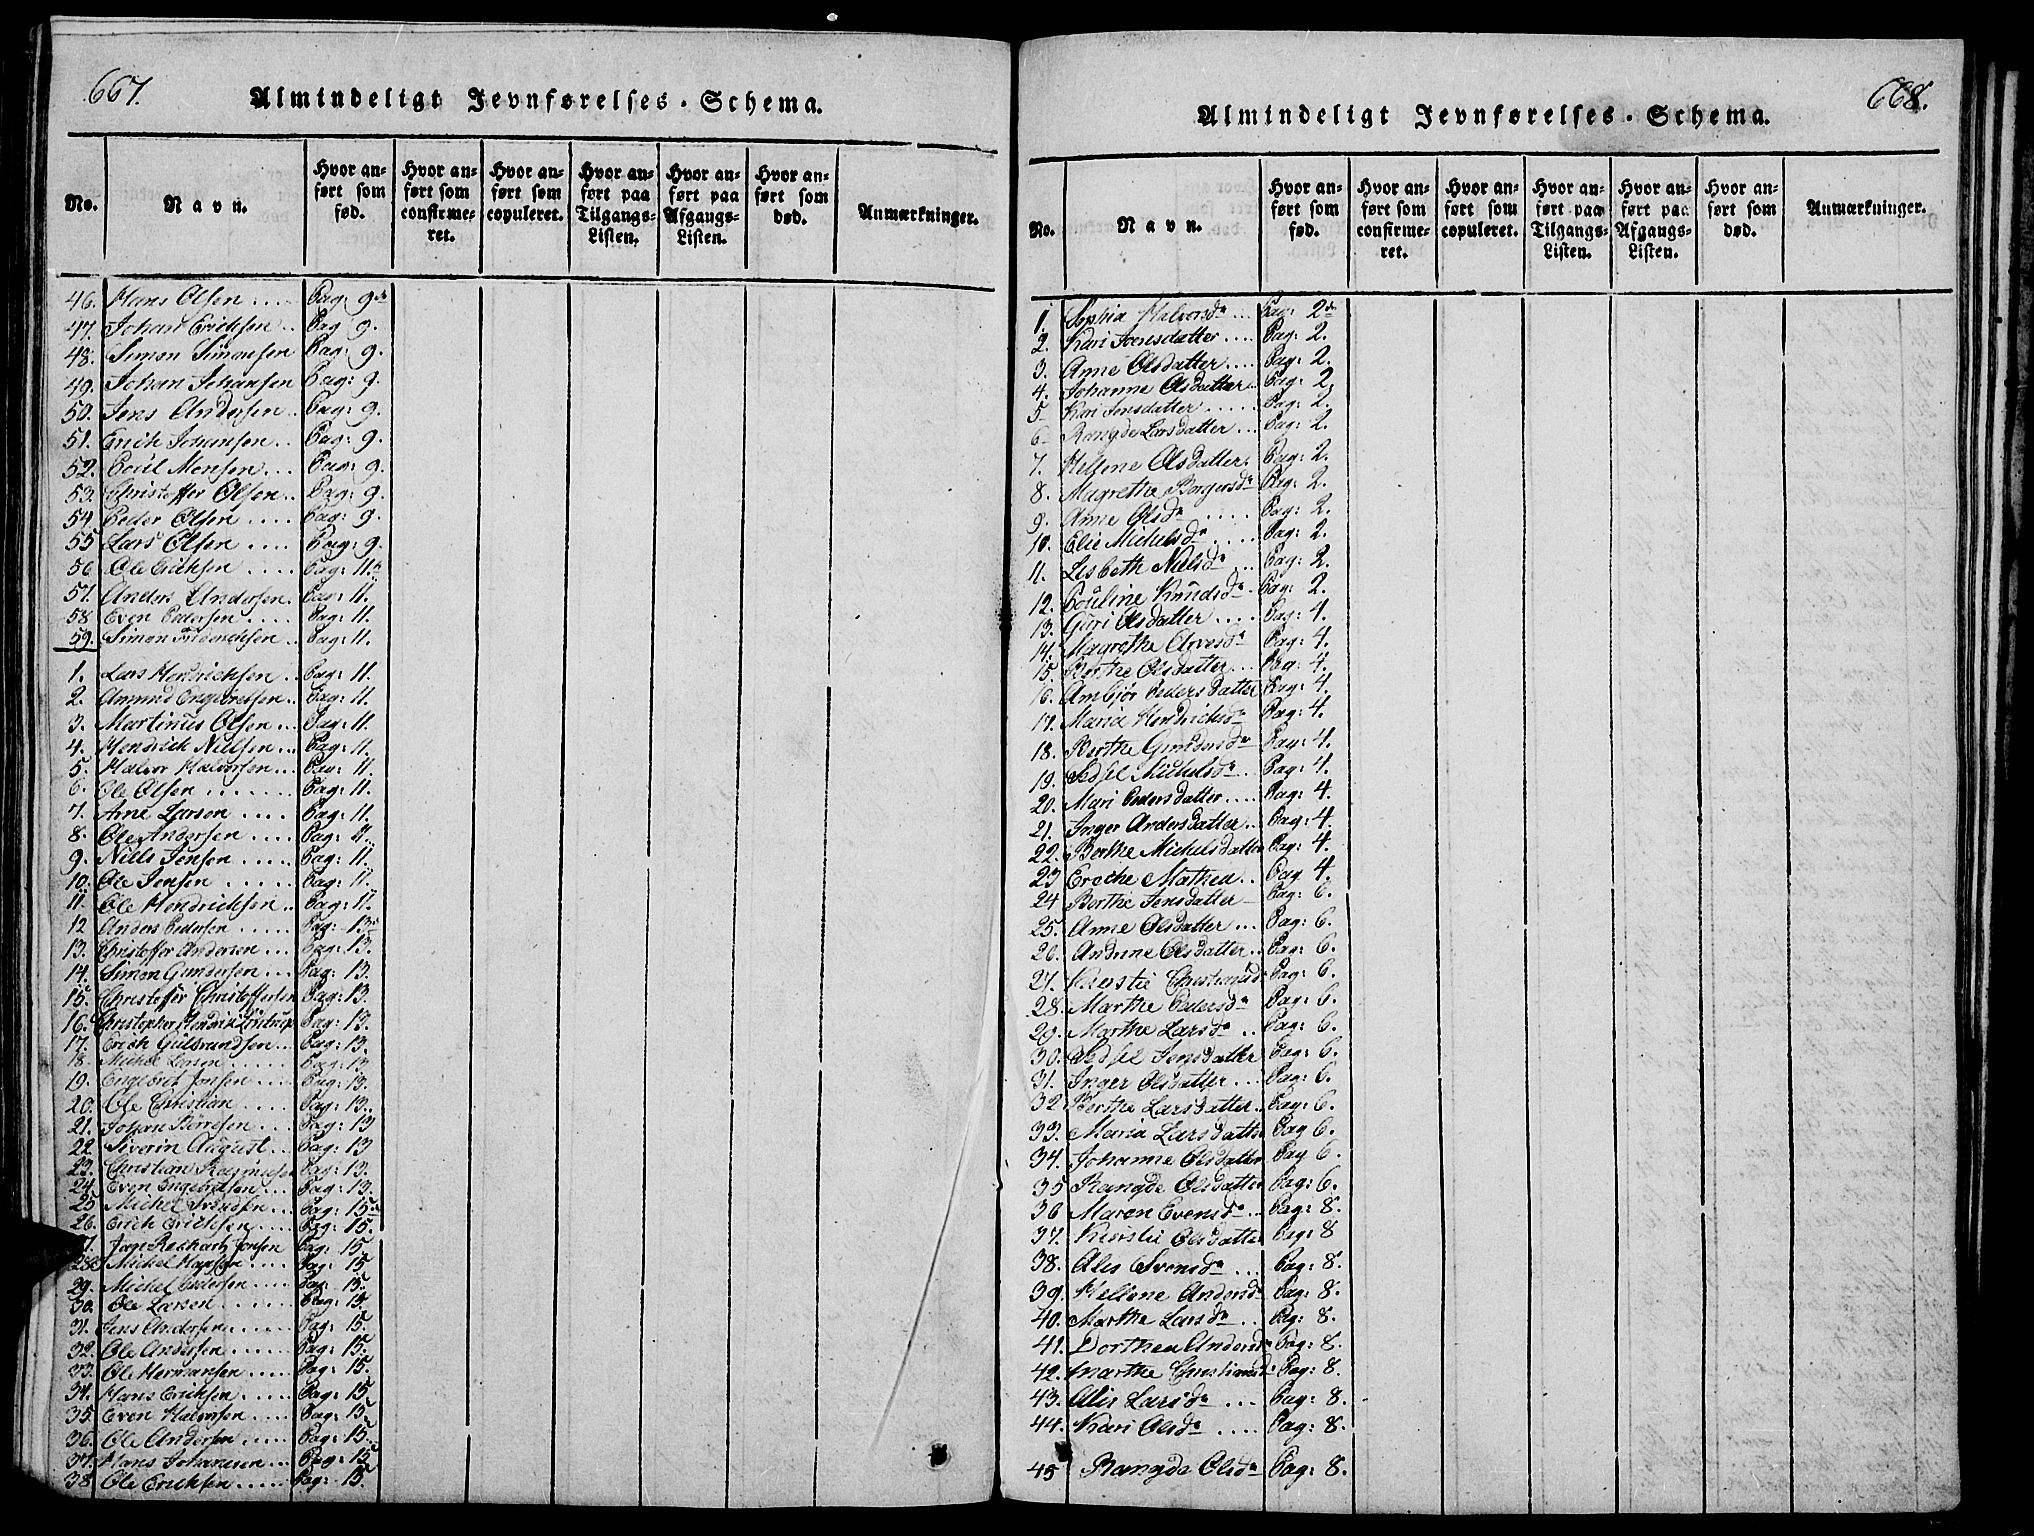 667.
Almindeligt Jevnførelses-Schema.
No.
Navn.
Hvor anført som fød.
Hvor anført som confirmeret.
Hvor anført som copuleret.
Hvor anført paa Tilgangs-Listen.
Hvor anført paa Afgangs-Listen.
Hvor anført som død.
Anmærkninger.
46. Hans Olsen .... Pag: 9de
47. Johan Erichsen .. Pag 9.
48. Simon Simonsen Pag: 9.
49. Johan Johansen Pag: 9.
50. Jens Andersen .. Pag: 9.
51. Erich Johansen .. Pag: 9.
52. Poul Monsen ... Pag: 9.
53. Christoffer Olsen .. Pag: 9.
54. Peder Olsen .... Pag: 9.
55 Lars Olsen .... Pag: 9.
56 Ole Erichsen .... Pag: 11te
57. Anders Andersen. Pag: 11.
58 Even Pedersen .... Pag: 11.
59. Simon Friderichsen .. Pag: 11.
1. Lars Hendrichsen .. Pag: 11.
2. Amund Engebretsen .. Pag: 11.
3. Martinus Olsen ... Pag: 11.
4. Hendrich Nielsen ... Pag: 11.
5. Halvor Halvorsen ... Pag: 11.
6. Ole Olsen ....... Pag: 11.
7. Arne Larsen .... Pag: 11.
8. Ole Andersen .... Pag: 11.
9. Niels Jensen ..... Pag: 11.
10. Ole Jensen ..... Pag: 11.
11. Ole Hendrichsen .. Pag: 11.
12 Anders Pedersen ..... Pag: 13
13. Christoffer Andersen ... Pag: 13.
14. Simon Gundersen ... Pag: 13.
15. Christoffer Christoffersen Pag: 13.
16. Christopher Hendrik Pag: 13.
17. Erich Gulbrandsen ... Pag: 13.
18. Michel Larsen ...... Pag: 13.
19. Engebret Jonsen .... Pag: 13.
20. Ole Christian ..... Pag: 13.
21. Johan Børresen ... Pag: 13
22. Siverin August .. Pag: 13
23. Christian Rasmusen Pag: 13.
24. Even Engebretsen ... Pag: 13.
25 Michel Svendsen ... Pag: 15de
26. Erich Erichsen .... Pag: 15.
27. Jan Jonsen Pag: 15
28. Michel Hansen .... Pag: 15.
29. Michel Pedersen .... Pag: 15.
30. Ole Larsen ...... Pag: 15.
31. Jens Andersen ..... Pag: 15.
32. Ole Andersen ..... Pag: 15.
33. Ole Hermansen .... Pag: 15.
34. Hans Erichsen .... Pag: 15.
35. Even Halvorsen .... Pag: 15.
36. Ole Andersen ..... Pag: 15.
37. Hans Johannesen ... Pag: 15
38 Ole Erichsen ..... Pag: 15.
668.
Almindeligt Jevnførelses-Schema.
No.
Navn.
Hvor anført som fød.
Hvor anført som confirmeret.
Hvor anført som copuleret.
Hvor anført paa Tilgangs-Listen.
Hvor anført paa Afgangs-Listen.
Hvor anført som død.
Anmærkninger.
1. Sophia Halvorsdr ... Pag: 2den
2. Kari Joensdatter .... Pag: 2.
3. Anne Olsdatter .... Pag: 2.
4. Johanne Olsdatter. Pag: 2.
5 Kari Jensdatter ..... Pag: 2.
6 Rangde Larsdatter ... Pag: 2.
7. Hellene Olsdatter. Pag: 2.
8. Magrethe Borgersdr Pag: 2.
9. Anne Olsdr ..... Pag: 2.
10. Elie Michelsdr .... Pag: 2.
11. Lisbeth Nielsdr ... Pag: 2.
12. Pouline Knudsdr .. Pag: 2.
13. Guri Olsdatter .... Pag: 4.
14. Magrethe Arvesdr Pag: 4.
15. Berthe Olsdatter ... Pag: 4.
16. Ambjør Pedersdatter Pag: 4.
17. Maria Hendrichsdr Pag: 4.
18. Berthe Gundersdr Pag: 4.
19. Sidsel Michelsdr .. Pag: 4.
20. Mari Pedersdatter .... Pag: 4.
21. Inger Andersdatter .. Pag: 4.
22. Berthe Michelsdatter Pag: 4.
23 Grethe Mathea .. Pag 4.
24 Berthe Jensdatter Pag: 6.
25. Anne Olsdatter ... Pag: 6.
26. Andrine Olsdatter .. Pag: 6.
27. Kierstie Christiansd Pag: 6.
28. Marthe Pedersdr Pag: 6.
29. Marthe Larsdr .. Pag: 6.
30. Sidsel Jensdatter Pag: 6.
31. Inger Olsdatter ... Pag: 6.
32 Berthe Larsdatter .. Pag: 6.
33. Maria Larsdatter Pag 6.
34. Johanne Olsdatter Pag 6.
35 Rangde Olsdatter Pag: 6.
36 Maren Evensdr .. Pag: 8.
37. Kierstie Olsdatter Pag: 8
38. Alis Svensdr ... Pag: 8.
39. Hellene Andersdr Pag: 8.
40. Marthe Larsdr .. Pag: 8.
41. Dorthea Andersdr Pag: 8.
42. Marthe Christiansdr Pag: 8.
43. Alis Larsdr ... Pag: 8.
44. Kari Olsdr .... Pag: 8.
45 Rangde Olsdr Pag: 8.